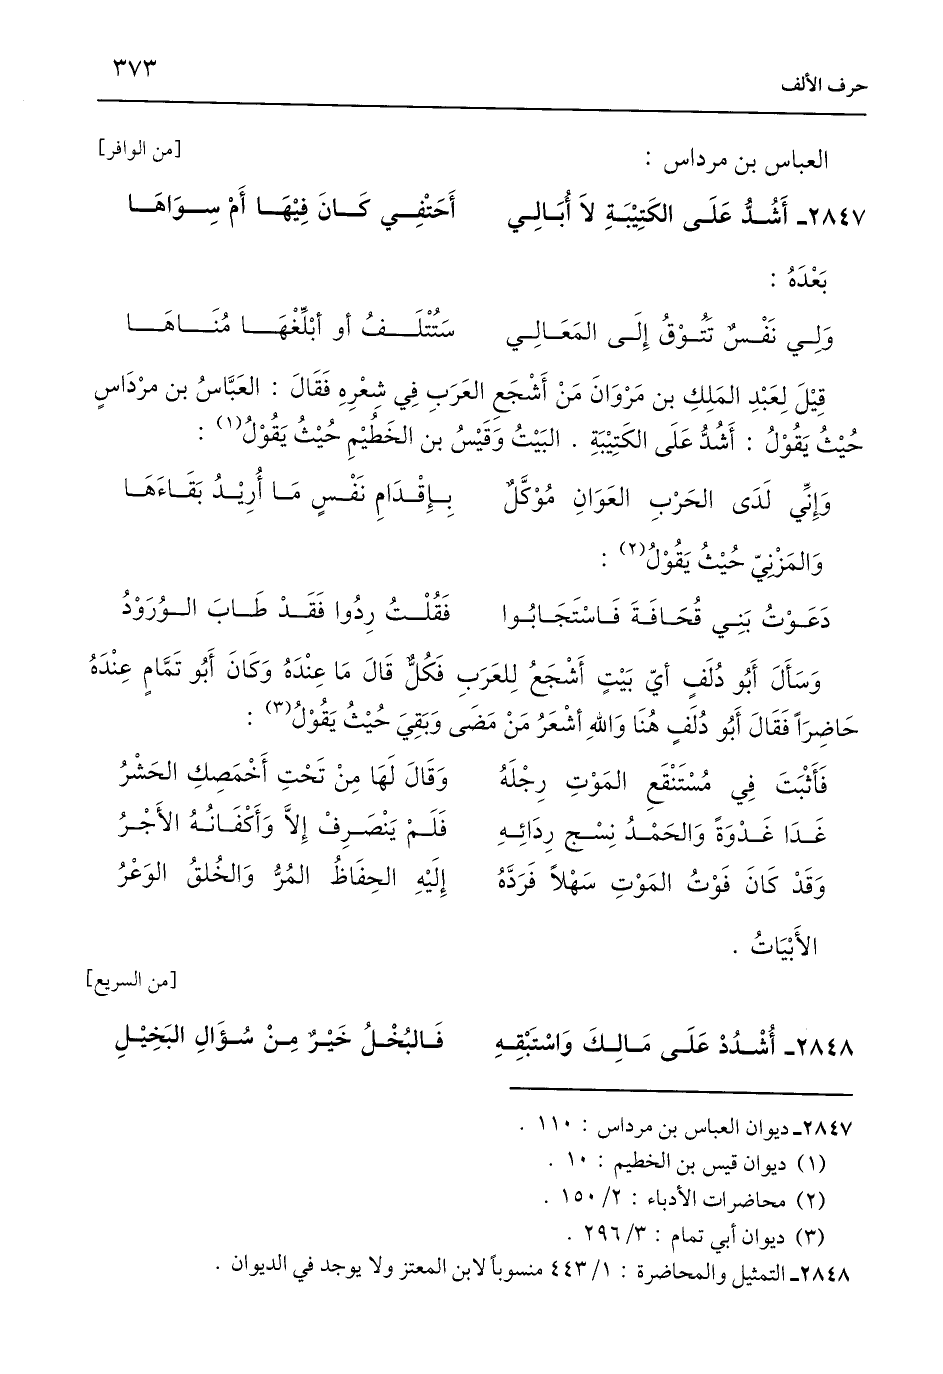 حرف الألف ٣٧٣
العباس بن مرداس : [من الوافر]
٢٨٤٧ـ أَشُدُّ عَلَى الكَتِيْبَةِ لاَ أُبَالِي أَحَتْفِي كَانَ فِيْهَا أَمْ سِوَاهَا
بَعْدَهُ :
وَلِي نَفْسٌ تَتُوْقُ إِلَى المَعَالِي سَتُتْلَفُ أو أبْلِّغْهَا مُنَاهَا
قِيْلَ لِعَبْدِ المَلِكِ بن مَرْوَانَ مَنْ أَشْجَع العَرَبِ فِي شِعْرِهِ فَقَالَ : العَبَّاسُ بن مرْدَاسٍ
حُيْثُ يَقُوْلُ : أَشُدُّ عَلَى الكَتِيْبَةِ . البَيْتُ وَقَيْسُ بن الخَطِيْمِ حُيْثُ يَقُوْلُ(١) :
وَإِنِّي لَدَى الحَرْبِ العَوَانِ مُوْكَّلٌ بِإِقْدَامِ نَفْسٍ مَا أُرِيْدُ بَقَاءَهَا
وَالمَزْنِيّ حُيْثُ يَقُوْلُ(٢) :
دَعَوْتُ بَنِي قُحَافَةَ فَاسْتَجَابُوا فَقُلْتُ رِدُوا فَقَدْ طَابَ الوُرَوْدُ
وَسَأَلَ أَبُو دُلَفٍ أيّ بَيْتٍ أَشْجَعُ لِلعَرَبِ فَكُلٌّ قَالَ مَا عِنْدَهُ وَكَانَ أَبُو تَمَّامٍ عِنْدَهُ
حَاضِرَاً فَقَالَ أَبُو دُلَفٍ هُنَا وَاللهِ أشْعَرُ مَنْ مَضَى وَبَقِيَ حُيْثُ يَقُوْلُ(٣) :
فَأَثْبَتَ فِي مُسْتَنْقَعِ المَوْتِ رِجْلَهُ وَقَالَ لَهَا مِنْ تَحْتِ أَخْمَصِكِ الحَشْرُ
غَدَا غَدْوَةً وَالحَمْدُ نِسْج رِدَائِهِ فَلَمْ يَنْصَرِفْ إِلاَّ وَأَكْفَانُهُ الأَجْرُ
وَقَدْ كَانَ فَوْتُ المَوْتِ سَهْلاً فَرَدَّهُ إِلَيْهِ الحِفَاظُ المُرُّ وَالخُلقُ الوَعْرُ
الأَبْيَاتُ .
[من السريع]
٢٨٤٨ـ أُشْدُدْ عَلَى مَالِكَ وَاسْتَبْقِهِ فَالبُخْلُ خَيْرٌ مِنْ سُؤَالِ البَخِيْلِ
٢٨٤٧ـ ديوان العباس بن مرداس : ١١٠ .
(١) ديوان قيس بن الخطيم : ١٠ .
(٢) محاضرات الأدباء : ٢/ ١٥٠ .
(٣) ديوان أبي تمام : ٣/ ٢٩٦ .
٢٨٤٨ـ التمثيل والمحاضرة : ١/ ٤٤٣ منسوباً لابن المعتز ولا يوجد في الديوان .